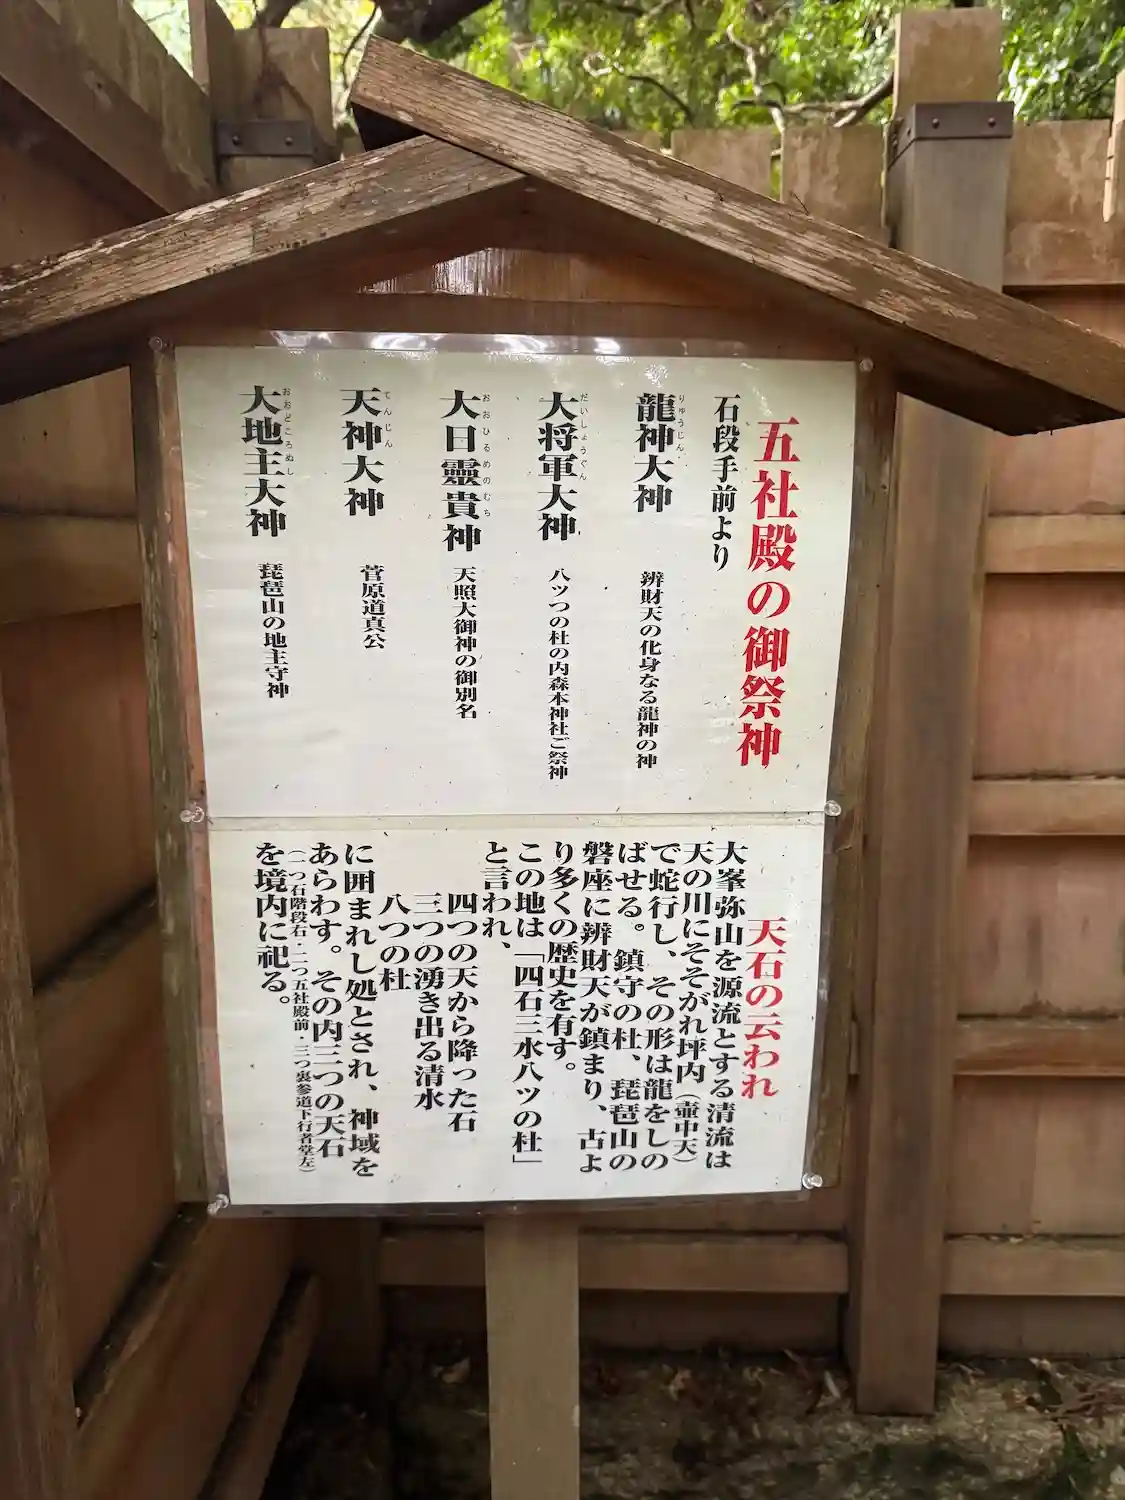 五社殿の御祭神
石段手前より
龍神大神 辨財天の化身なる龍神の神
りゅうじん
大将軍大神 八ッつの杜の内森本神社ご祭神
だいしょうぐん
大日靈貴神 天照大御神の御別名
おおひるめのむち
天神大神 菅原道真公
てんじん
大地主大神 琵琶山の地主守神
おおどころぬし
天石の云われ
大峯弥山を源流とする清流は
天の川にそそがれ坪内(壷中天)
で蛇行し、その形は龍をしの
ばせる。鎮守の杜、琵琶山の
磐座に辨財天が鎮まり、古よ
り多くの歴史を有す。
この地は「四石三水八ツの杜」
と言われ、
四つの天から降った石
三つの湧き出る清水
八つの杜
に囲まれし処とされ、神域を
あらわす。その内三つの天石
(一つ石階段右・二つ五社殿前・三つ裏参道下行者堂左)
を境内に祀る。